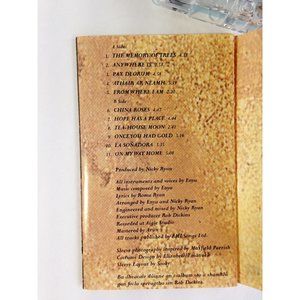 A Side:
1. THE MEMORY OF TREES 4.18
2. ANYWHERE IS
3. PAX DEORUM
4. ATHAIR AR NEAMH
5. FROM WHERE I AM 2.20
B Side:
6. CHINA ROSES 4.47
7. HOPE HAS A PLACE 4.44
8. TEA-HOUSE MOON 2.40
9. ONCE YOU HAD GOLD
10. LA SOÑADORA
11. ON MY WAY HOME 5.08
Produced by Nicky Ryan
All instruments and voices by Enya
Music composed by Enya
Lyrics by Roma Ryan
Arranged by Enya and Nicky Ryan
Engineered and mixed by Nicky Ryan
Executive producer Rob Dickins
Recorded at Aigle Studio
Mastered by Arun
All tracks published by EMI Songs Ltd.
Sleeve photography inspired by Maxfield Parrish
Costume Design by Elizabeth
Sleeve Layout by